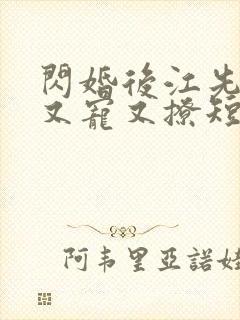 閃婚後江先
又寵又撩短
阿韦里亞諾娃